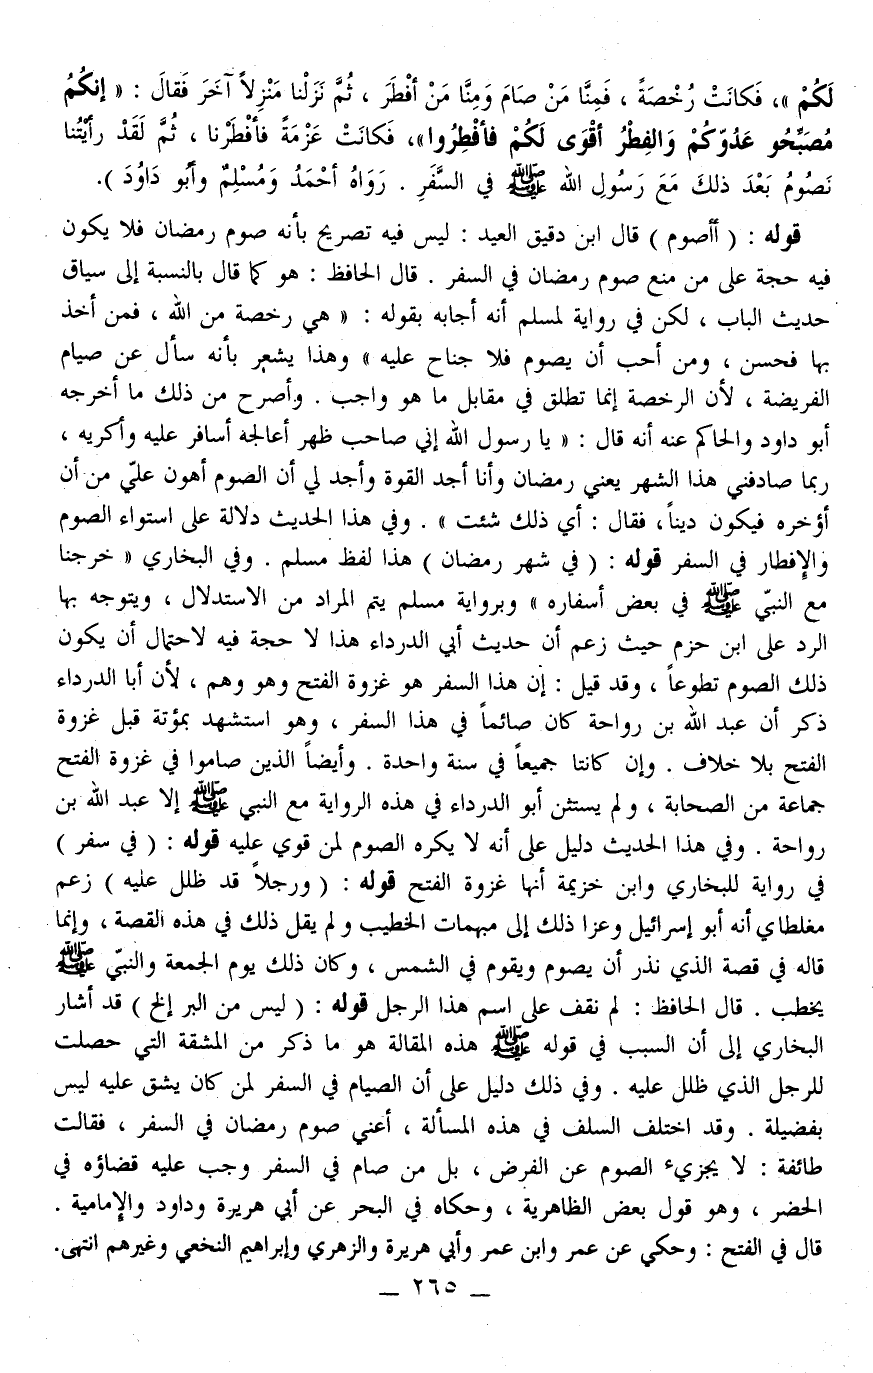 لَكُمْ »، فَكانَتْ رُخْصَةً ، فَمِنَّا مَنْ صَامَ وَمِنَّا مَنْ أفْطَرَ ، ثُمَّ نَزَلْنا مَنْزِلاً آخَرَ فَقالَ : « إنكُمْ
مُصَبِّحُو عَدُوّكُمْ وَالفِطْرُ أقْوَى لَكُمْ فأفْطِرُوا »، فَكانَتْ عَزْمَةً فأفْطَرْنا ، ثُمَّ لَقَدْ رأيْتُنا
نَصُومُ بَعْدَ ذلكَ مَعَ رَسُولِ الله ﷺ في السَّفَرِ . رَوَاهُ أحْمَدُ وَمُسْلِمٌ وأبُو دَاوُدَ ).
قوله : ( أأصوم ) قال ابن دقيق العيد : ليس فيه تصريح بأنه صوم رمضان فلا يكون
فيه حجة على من منع صوم رمضان في السفر . قال الحافظ : هو كما قال بالنسبة إلى سياق
حديث الباب ، لكن في رواية لمسلم أنه أجابه بقوله : « هي رخصة من الله ، فمن أخذ
بها فحسن ، ومن أحب أن يصوم فلا جناح عليه » وهذا يشعر بأنه سأل عن صيام
الفريضة ، لأن الرخصة إنما تطلق في مقابل ما هو واجب . وأصرح من ذلك ما أخرجه
أبو داود والحاكم عنه أنه قال : « يا رسول الله إني صاحب ظهر أعالجه أسافر عليه وأكريه ،
ربما صادفني هذا الشهر يعني رمضان وأنا أجد القوة وأجد لي أن الصوم أهون عليّ من أن
أؤخره فيكون ديناً، فقال : أي ذلك شئت » . وفي هذا الحديث دلالة على استواء الصوم
والإفطار في السفر قوله : ( في شهر رمضان ) هذا لفظ مسلم . وفي البخاري « خرجنا
مع النبيّ ﷺ في بعض أسفاره » وبرواية مسلم يتم المراد من الاستدلال ، ويتوجه بها
الرد على ابن حزم حيث زعم أن حديث أبي الدرداء هذا لا حجة فيه لاحتمال أن يكون
ذلك الصوم تطوعاً ، وقد قيل : إن هذا السفر هو غزوة الفتح وهو وهم ، لأن أبا الدرداء
ذكر أن عبد الله بن رواحة كان صائماً في هذا السفر ، وهو استشهد بمؤتة قبل غزوة
الفتح بلا خلاف . وإن كانتا جميعاً في سنة واحدة . وأيضاً الذين صاموا في غزوة الفتح
جماعة من الصحابة ، ولم يستثن أبو الدرداء في هذه الرواية مع النبي ﷺ إلا عبد الله بن
رواحة . وفي هذا الحديث دليل على أنه لا يكره الصوم لمن قوي عليه قوله : ( في سفر )
في رواية للبخاري وابن خزيمة أنها غزوة الفتح قوله : ( ورجلاً قد ظلل عليه ) زعم
مغلطاي أنه أبو إسرائيل وعزا ذلك إلى مبهمات الخطيب ولم يقل ذلك في هذه القصة ، وإنما
قاله في قصة الذي نذر أن يصوم ويقوم في الشمس ، وكان ذلك يوم الجمعة والنبيّ ﷺ
يخطب . قال الحافظ : لم نقف على اسم هذا الرجل قوله : ( ليس من البر إلخ ) قد أشار
البخاري إلى أن السبب في قوله ﷺ هذه المقالة هو ما ذكر من المشقة التي حصلت
للرجل الذي ظلل عليه . وفي ذلك دليل على أن الصيام في السفر لمن كان يشق عليه ليس
بفضيلة . وقد اختلف السلف في هذه المسألة ، أعني صوم رمضان في السفر ، فقالت
طائفة : لا يجزيء الصوم عن الفرض ، بل من صام في السفر وجب عليه قضاؤه في
الحضر ، وهو قول بعض الظاهرية ، وحكاه في البحر عن أبي هريرة وداود والإمامية .
قال في الفتح : وحكي عن عمر وابن عمر وأبي هريرة والزهري وإبراهيم النخعي وغيرهم انتهى.
— ٢٦٥ —